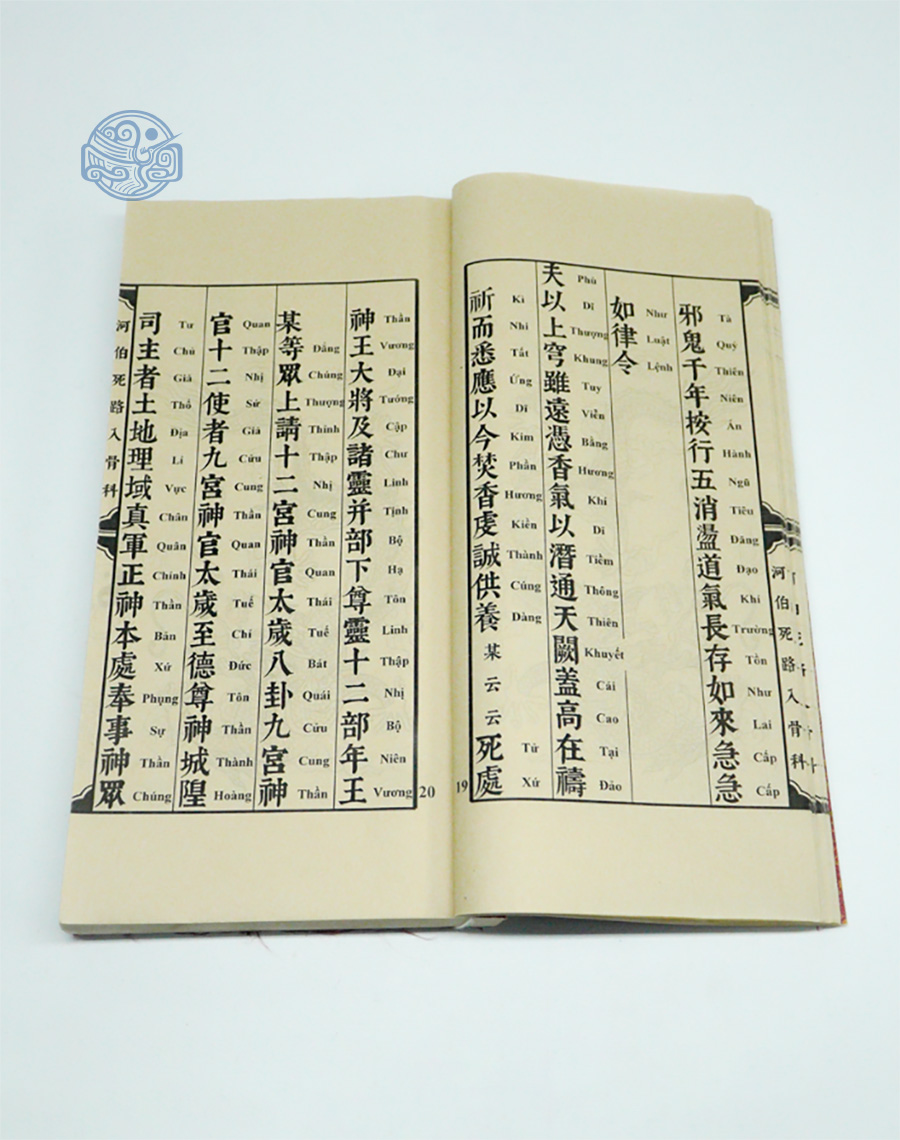 河伯死路入骨科
邪鬼千年按行五消盪道氣長存如來急急
Tà Quý Thiên Niên Án Hành Ngũ Tiêu Đãng Đạo Khí Trường Tồn Như Lai Cấp Cấp
如律令
Như Luật Lệnh
夫以上穹雖遠憑香氣以潛通天闕蓋高在禱
Phù Dĩ Thượng Khung Tuy Viễn Bằng Hương Khí Di Tiềm Thông Thiên Khuyết Cái Cao Tại Đảo
祈而悉應以今焚香虔誠供養某云云死處
Kì Nhi Tất Ứng Dĩ Kim Phần Hương Kiền Thành Cúng Dàng Tử Xứ
19
神王大將及諸靈并部下尊靈十二部年王
Thần Vương Đại Tướng Cập Chư Linh Tịnh Bộ Hạ Tôn Linh Thập Nhị Bộ Niên Vương
某等眾上請十二宮神官太歲八卦九宮神
Đẳng Chúng Thượng Thỉnh Thập Nhị Cung Thần Quan Thái Tuế Bát Quái Cửu Cung Thần
官十二使者九宮神官太歲至德尊神城隍
Quan Thập Nhị Sứ Giả Cửu Cung Thần Quan Thái Tuế Chí Đức Tôn Thần Thành Hoàng
司主者土地理域真軍正神本處奉事神眾
Tư Chủ Giả Thổ Địa Lí Vực Chân Quân Chính Thần Bản Xứ Phụng Sự Thần Chúng
河伯死路入骨科
20